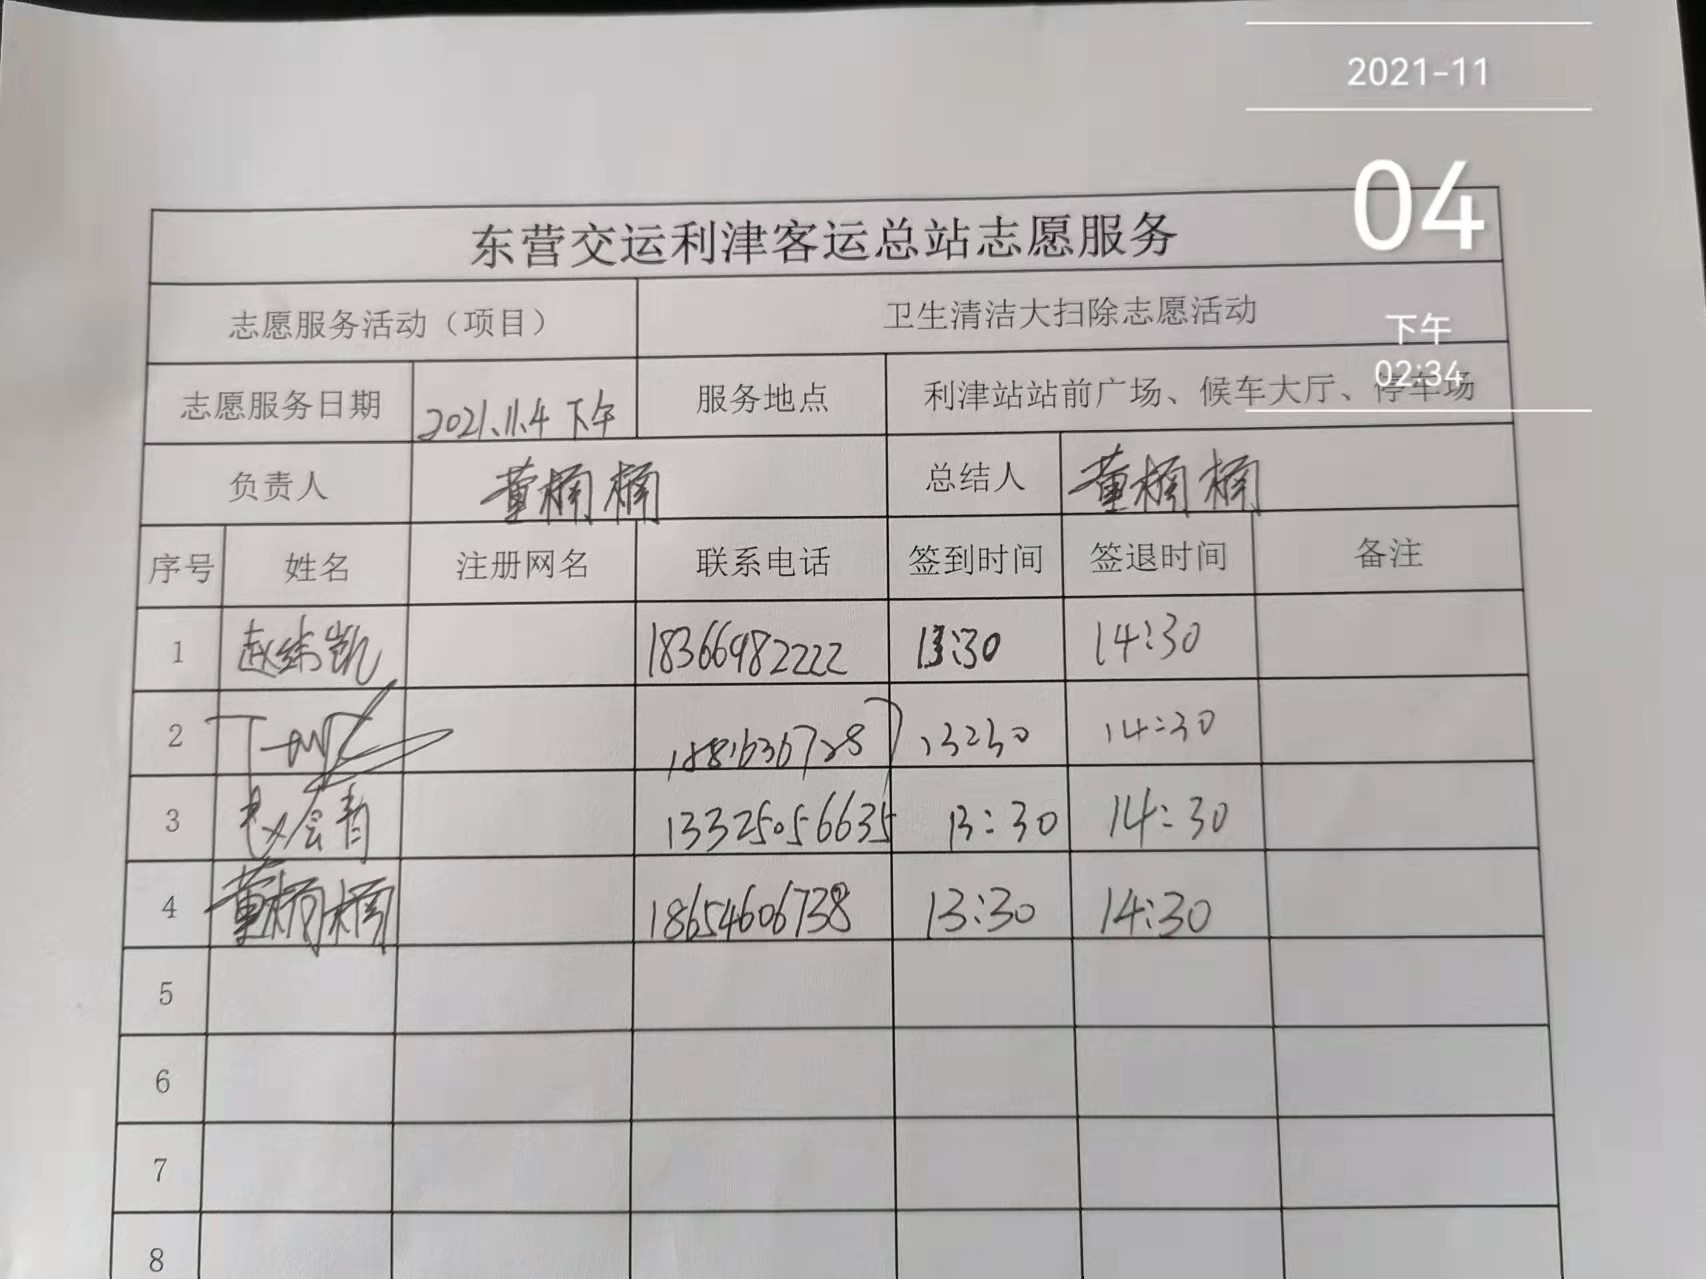 2021-11
04
下午
02:34
东营交运利津客运总站志愿服务
志愿服务活动（项目） 卫生清洁大扫除志愿活动
志愿服务日期 2021.11.4 下午 服务地点 利津站站前广场、候车大厅、停车场
负责人 董楠楠 总结人 董楠楠
序号 姓名 注册网名 联系电话 签到时间 签退时间 备注
1 赵纬凯 18366982222 13:30 14:30
2 13:30 14:30
3 赵会青 13325056635 13:30 14:30
4 董楠楠 18654606738 13:30 14:30
5
6
7
8